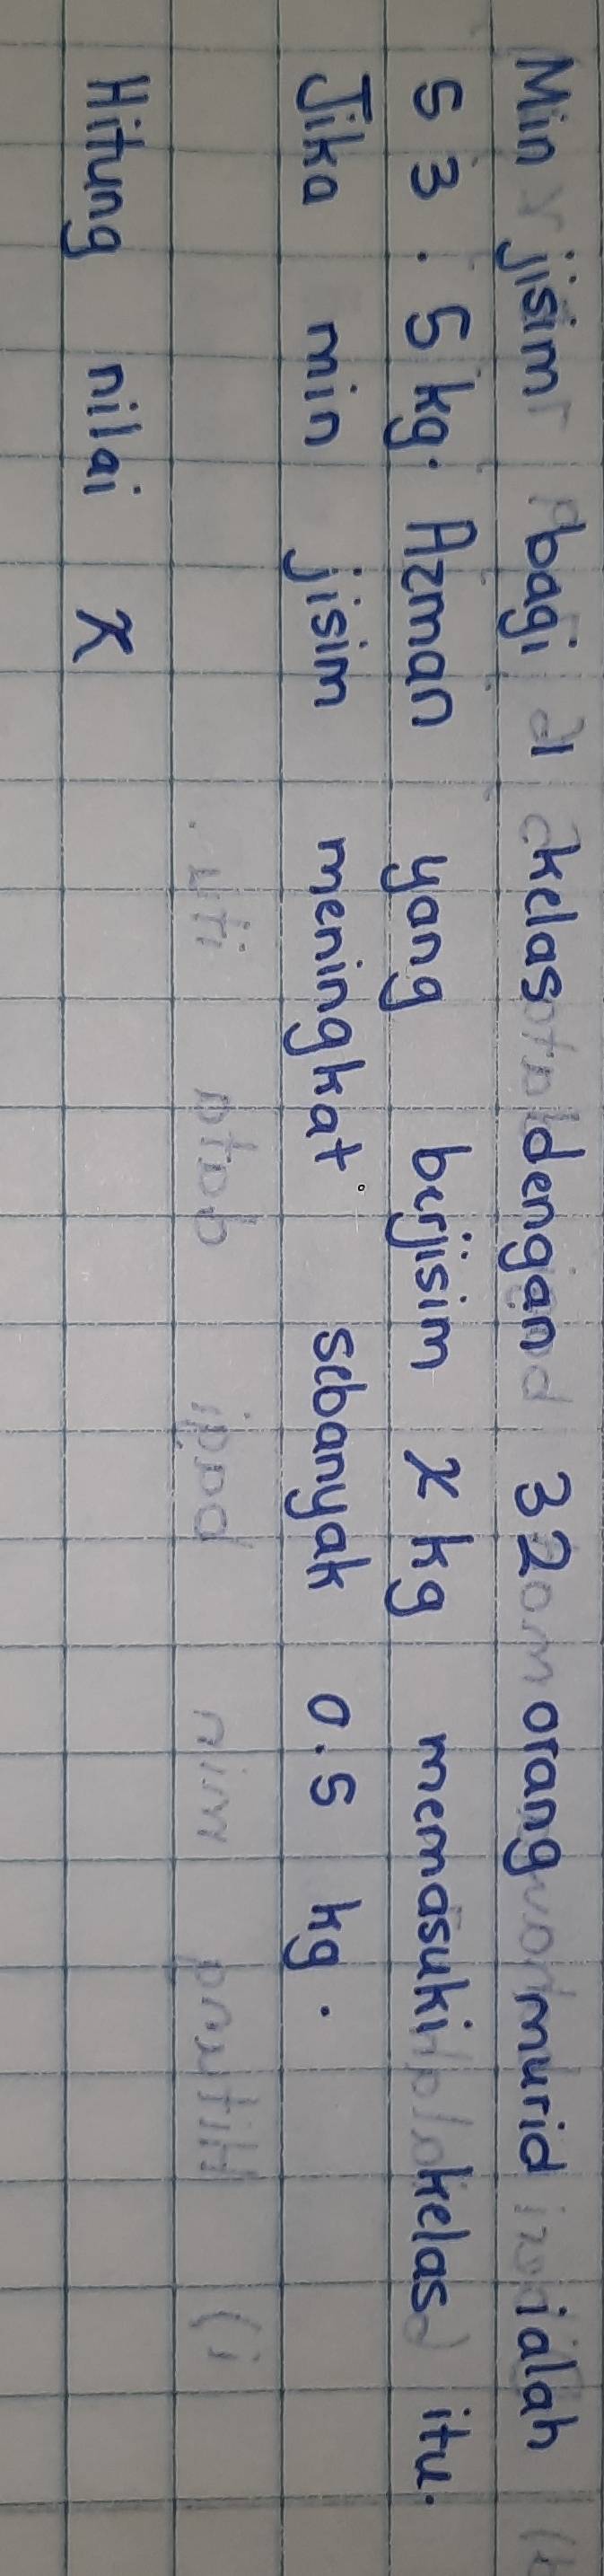 Min jisim bagi 1 kelas dengan 32 orang murid ialah
53.5 kg. Azman yang berjisim x kg memasuki kelas itu.
Jika min jisim meningkat sebanyak 0.5 kg.
Hitung nilai x